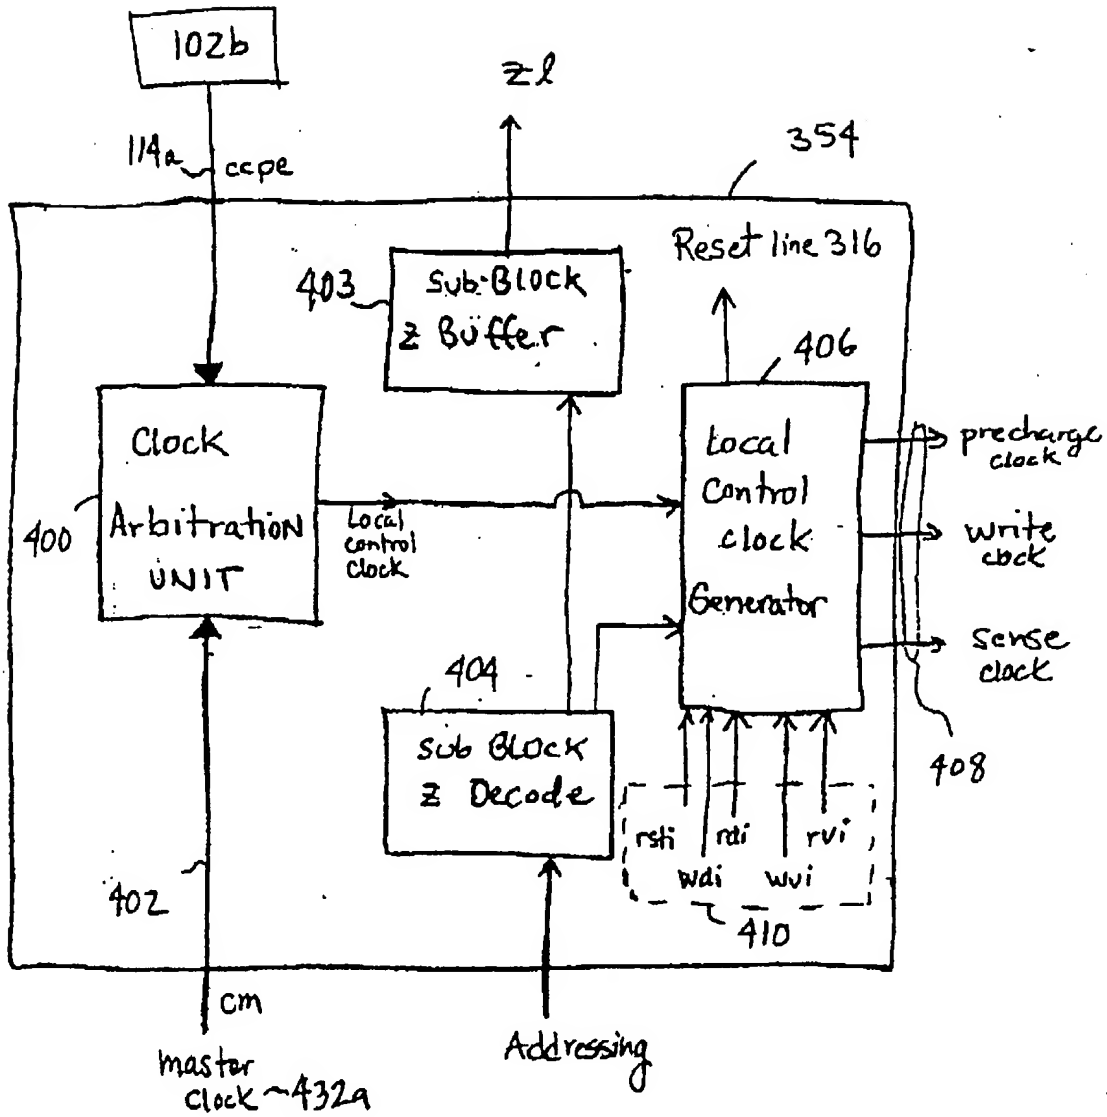 102b
zl
114a
ccpe
354
Reset line 316
403
Sub-Block
z Buffer
406
Clock
Arbitration
UNIT
400
Local
control
clock
Local
Control
clock
Generator
precharge
clock
write
clock
sense
clock
404
408
Sub Block
z Decode
rsti
rdi
rvi
wdi
wvi
402
410
cm
master
clock ~432a
Addressing